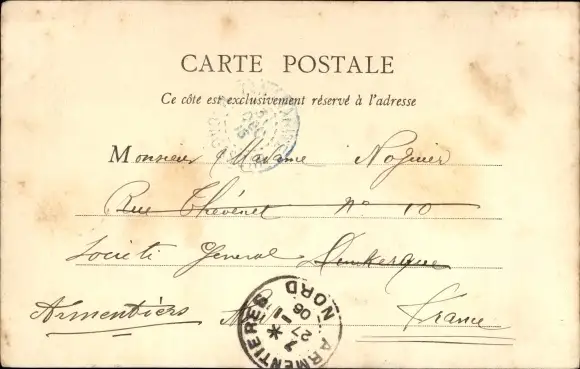 CARTE POSTALE
Ce côté est exclusivement réservé à l'adresse
Monsieur Madame Noguier
Rue Thévenet No 10
Société General Dunkerque
Armentiers
France
ARMENTIERES
NORD
27 - 1
06